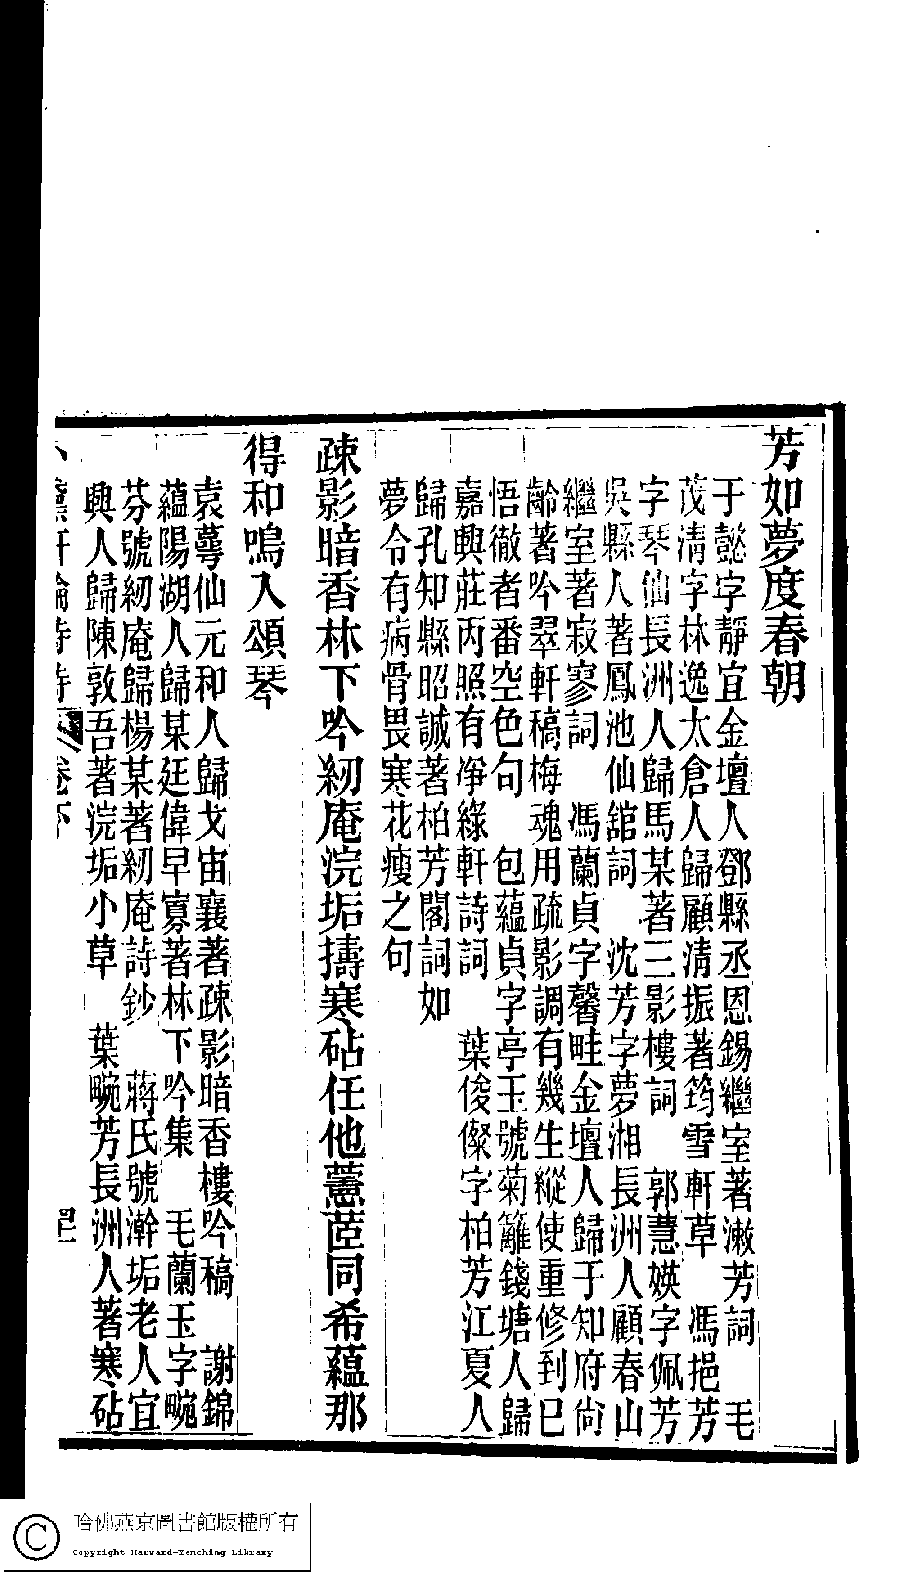 芳如夢度春朝
于懿字靜宜金壇人鄧縣丞恩錫繼室著漱芳詞　毛
茂清字林逸太倉人歸顧清振著筠雪軒草　馮挹芳
字琴仙長洲人歸馬某著三影樓詞　郭慧媖字佩芳
吳縣人著鳳池仙舘詞　沈芳字夢湘長洲人顧春山
繼室著寂寥詞　馮蘭貞字馨畦金壇人歸于知府尙
齡著吟翠軒稿梅魂用疏影調有幾生縱使重修到已
悟徹者番空色句　包蘊貞字亭玉號菊籬錢塘人歸
嘉興莊丙照有凈綠軒詩詞　葉俊儏字柏芳江夏人
歸孔知縣昭誠著柏芳閣詞如
夢令有病骨畏寒花瘦之句
疎影暗香林下吟紉庵浣垢擣寒砧任他蕙茝同希蘊那
得和鳴入頌琴
袁蕚仙元和人歸戈宙襄著疎影暗香樓吟稿　謝錦
蘊陽湖人歸某廷偉早寡著林下吟集　毛蘭玉字畹
芬號紉庵歸楊某著紉庵詩鈔　蔣氏號澣垢老人宜
興人歸陳敦吾著浣垢小草　葉畹芳長洲人著寒砧
軒論詩詩　卷下
哈佛燕京圖書館版權所有
Copyright Harvard-Yenching Library